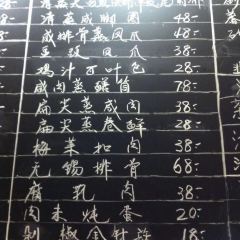 清蒸咸脚圈 48:-
咸排骨蒸凤爪 48:-
豆豉凤爪 38:-
鸡汁百叶包 28:-
咸肉蒸鲜笋 78:-
扁尖蒸咸肉 38:-
扁尖蒸卷鲜 28:-
梅菜扣肉 38:-
无锡排骨 68:-
腐乳肉 38:-
肉末炖蛋 20:-
剁椒金针菇 18:-